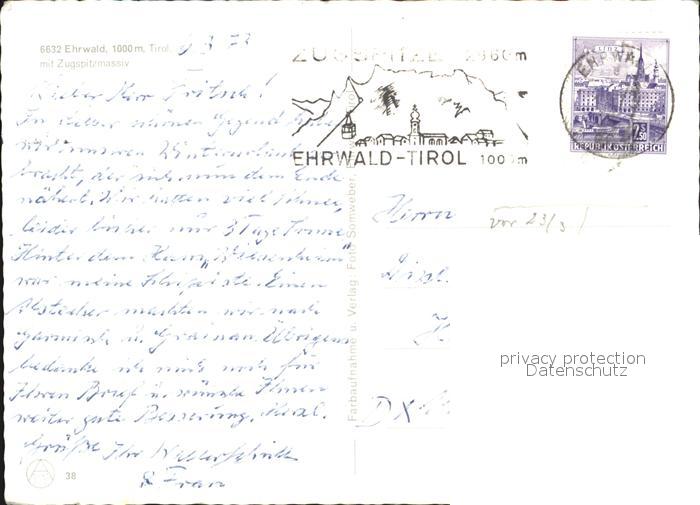 6632 Ehrwald, 1000 m, Tirol
mit Zugspitzmassiv
6 3 73
Lieber Herr Fritsch!
In dieser schönen Gegend haben
wir unseren Winterurlaub ver-
bracht, der sich nun dem Ende
nähert. Wir hatten viel Schnee,
leider bisher nur 3 Tage Sonne.
Hinter dem Haus „Wiesenheim"
war meine Skipiste. Einen
Abstecher machten wir nach
Garmisch u. Grainau. Übrigens
bedanke ich mich noch für
Ihren Brief u. wünsche Ihnen
weiter gute Besserung. Herzl.
Grüße Ihr
& Frau
38
Farbaufnahme u. Verlag: Foto Somweber,
ZUGSPITZE 2960 m
EHRWALD-TIROL 1000 m
LINZ
EHRWALD
REPUBLIK ÖSTERREICH
Herrn
vor 23/3
privacy protection
Datenschutz